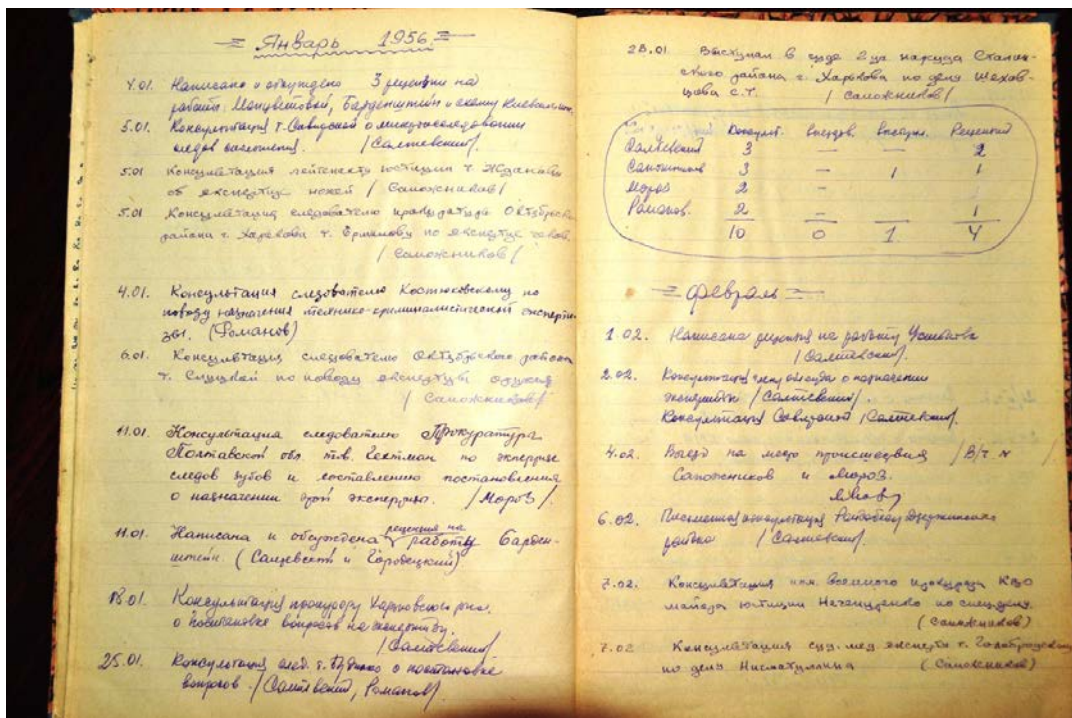 Январь 1956.
4.01. Написано и обсуждено 3 рецензии на
работы
5.01. Консультация т. Савицкой о
следов /Салтевский/.
5.01 Консультация лейтенанту юстиции т. Жданову
об экспертизе ножей /Сапожников/
5.01 Консультация следователю прокуратуры Октябрьск.
района г. Харькова т. Ермакову по экспертизе
/Сапожников/
4.01. Консультация следователю Костюковскому по
поводу назначения технико-криминалистической экспертизы
зы. (Романов)
6.01. Консультация следователю Октябрьского района
т. Слуцкой по поводу экспертизы оружия
/Сапожников/
11.01. Консультация следователю Прокуратура
Полтавской обл. тов. Гехтман по экспертизе
следов зубов и составлению постановления
о назначении этой экспертизы. /Мороз/.
11.01. Написана и обсуждена рецензия на работу Барден-
штейн. (Салтевский и Городецкий)
18.01. Консультация прокурору Харьковского р-на.
о постановке вопросов на экспертизу.
/Салтевский/
25.01. Консультация след. т. о постановке
вопросов. /Салтевский, Романов/
28.01 Выступал в суде 2 уч. нарсуда Сталин-
ского района г. Харькова по делу Шехов-
цова С.Т. /Сапожников/
Консульт. Выездов. Выступл. Рецензий
Салтевский 3 — — 2
Сапожников 3 — 1 1
Мороз 2 —
Романов. 2 — 1
10 0 1 4
Февраль
1.02. Написана рецензия на работу
/Салтевский/.
2.02. Консультация о назначении
экспертизы /Салтевский/
Консультация Савицкой /Салтевский/.
4.02. Выезд на место происшествия /В/ч N /
Сапожников и Мороз.
6.02. Письменная консультация Дзержинского
района /Салтевский/.
7.02. Консультация пом. военного прокурора КВО
майору юстиции Нечипуренко по спецделу.
(Сапожников)
7.02 Консультация суд. мед. эксперту т.
по делу (Сапожников)